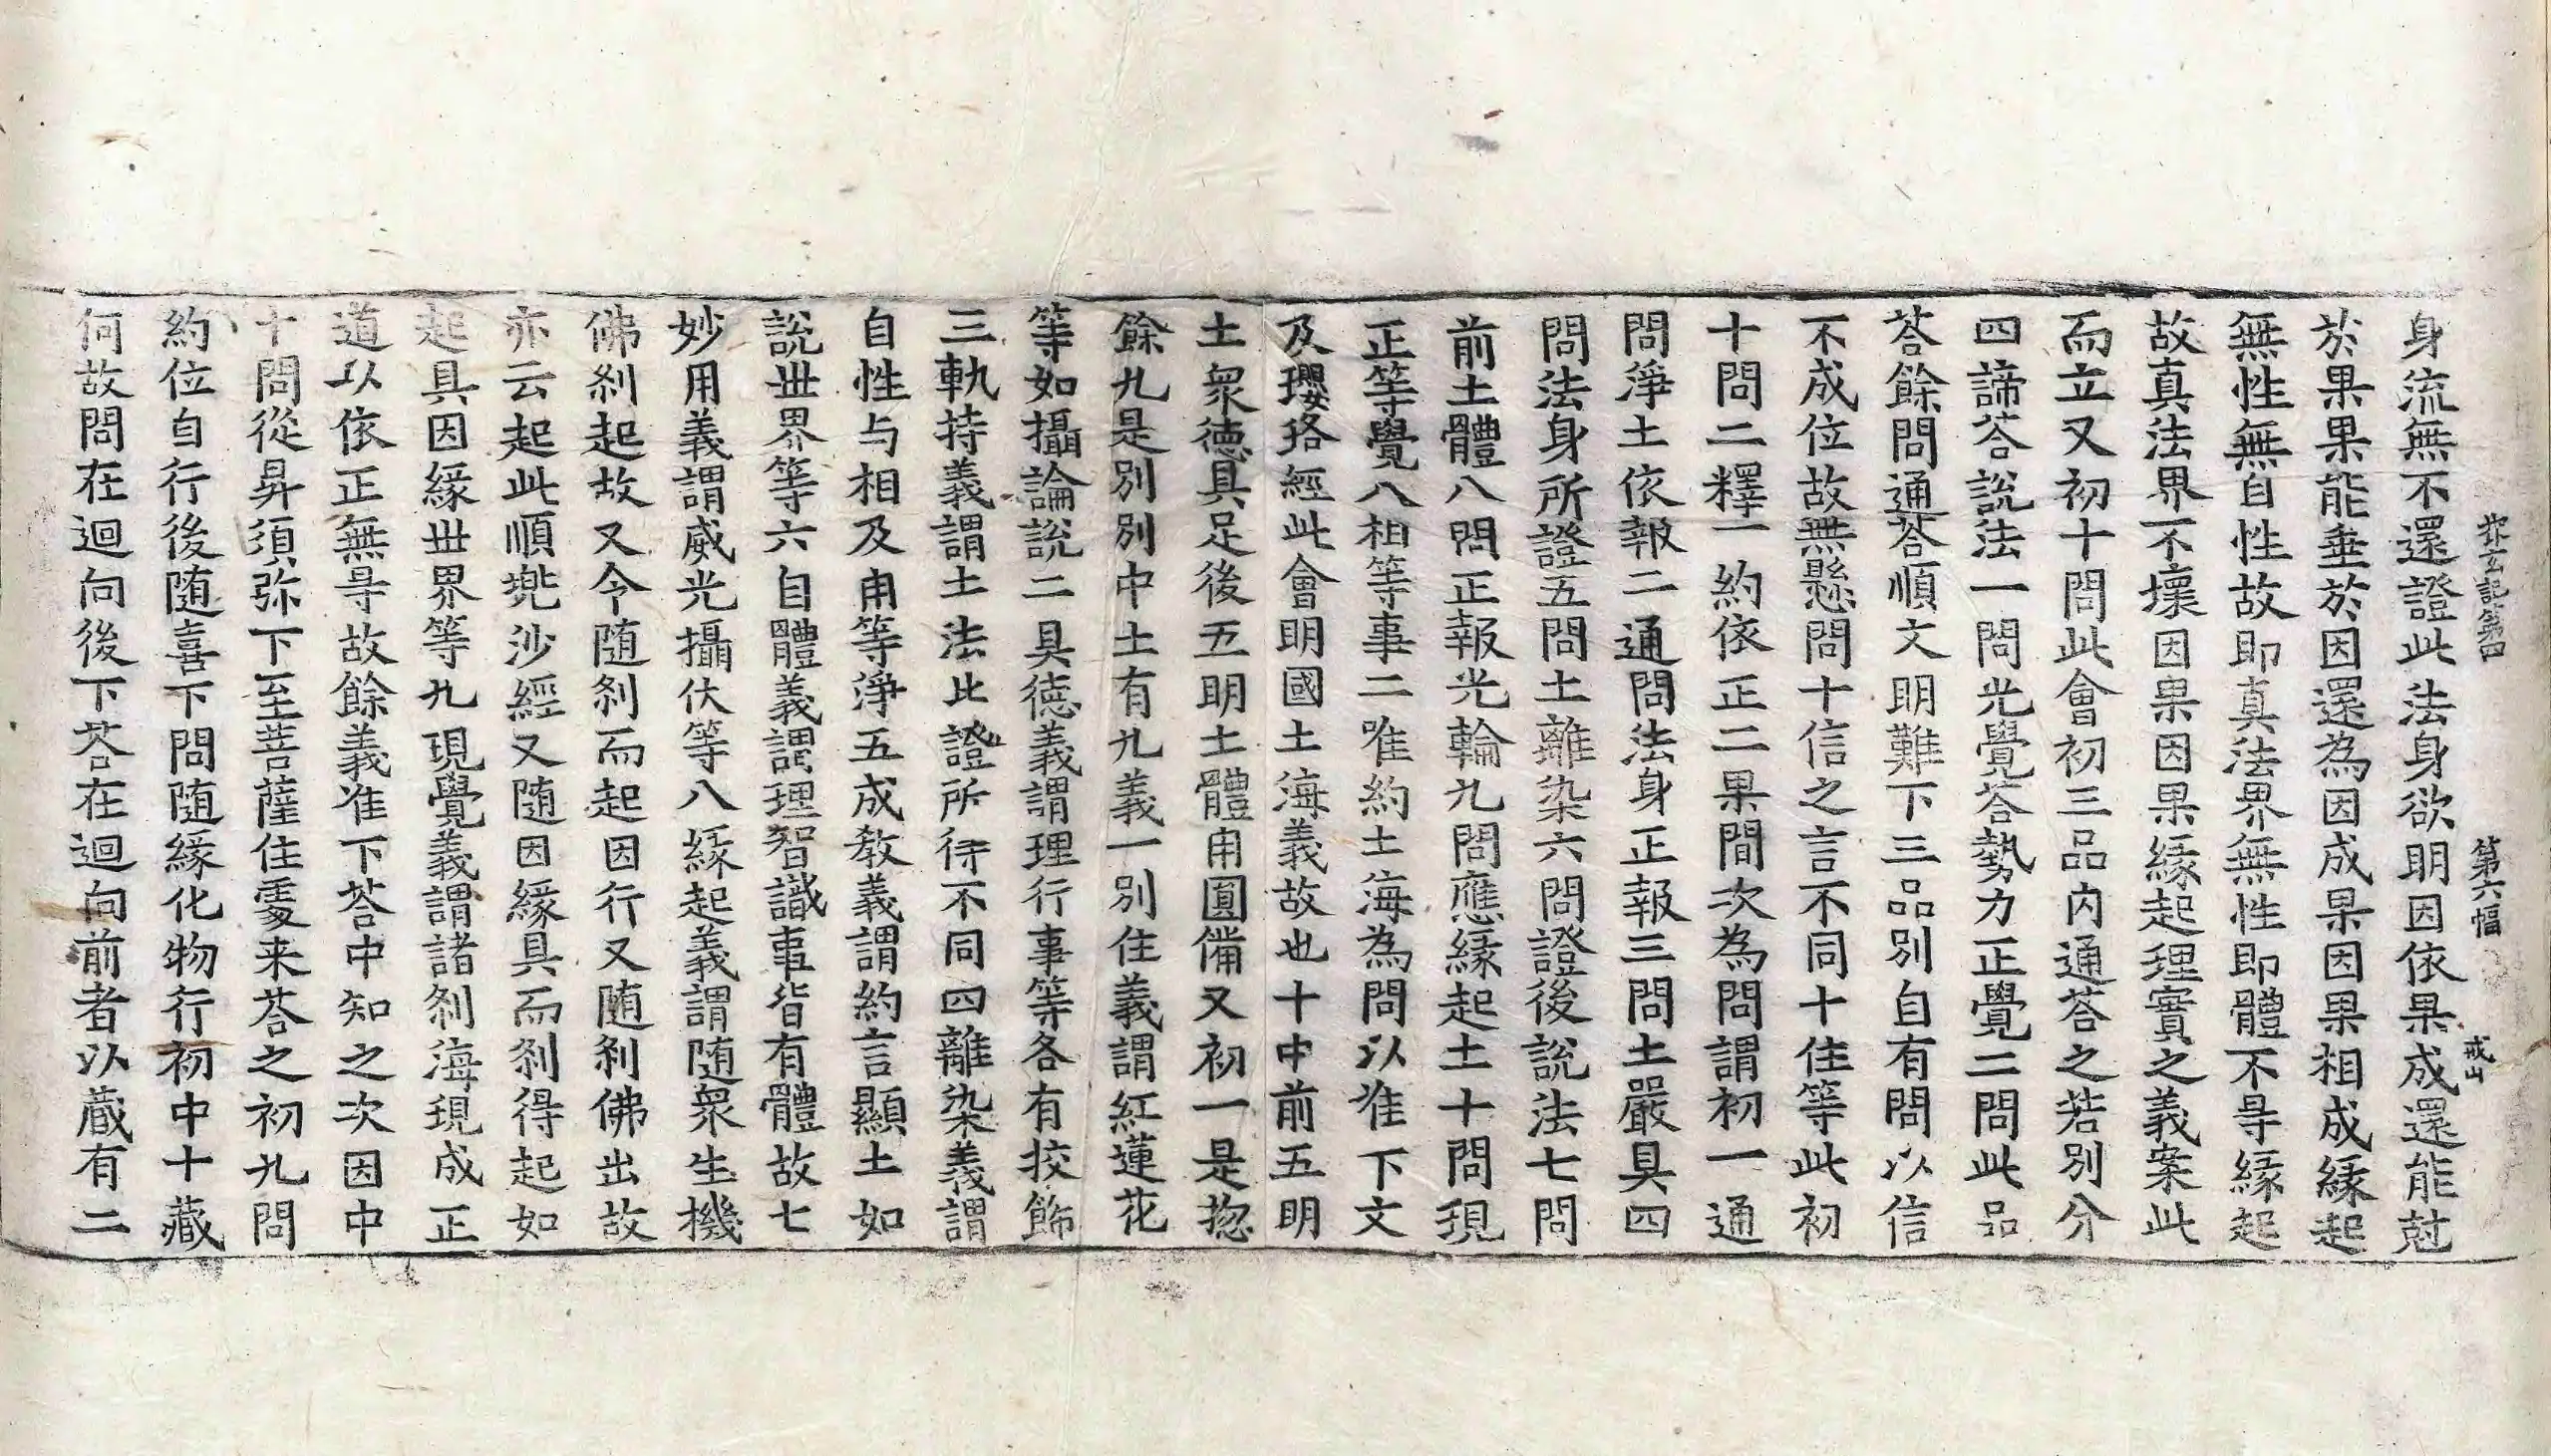 探玄記第四 第六幅 戒山
身流無不還證此法身欲明因依果成還能尅
於果果能垂於因還為因成果因果相成縁起
無性無自性故即真法界無性即體不㝵縁起
故真法界不壞因果因果縁起理實之義案此
而立又初十問此會初三品内通荅之若別分
四諦荅說法一問光覺荅勢力正覺二問此品
荅餘問通荅順文明難下三品別自有問以信
不成位故無懸問十信之言不同十住等此初
十問二釋一約依正二果間次為問謂初一通
問淨土依報二通問法身正報三問土嚴具四
問法身所證五問土離染六問證後說法七問
前土體八問正報光輪九問應縁起土十問現
正等覺八相等事二唯約土海為問以准下文
及瓔珞經此會明國土海義故也十中前五明
土衆徳具足後五明土體用圓備又初一是揔
餘九是別別中土有九義一別住義謂紅蓮花
等如攝論說二具徳義謂理行事等各有挍飾
三軌持義謂土法比證所待不同四離染義謂
自性与相及用等淨五成教義謂約言顯土如
說世界等六自體義謂理智識事皆有體故七
妙用義謂威光攝伏等八縁起義謂随衆生機
佛刹起故又令随刹而起因行又随刹佛出故
亦云起此順兠沙經又随因縁具而刹得起如
起具因縁世界等九現覺義謂諸刹海現成正
道以依正無㝵故餘義准下荅中知之次因中
十問從昇須弥下至菩薩住䖏来荅之初九問
約位自行後随喜下問随縁化物行初中十藏
何故問在迴向後下荅在迴向前者以蔵有二